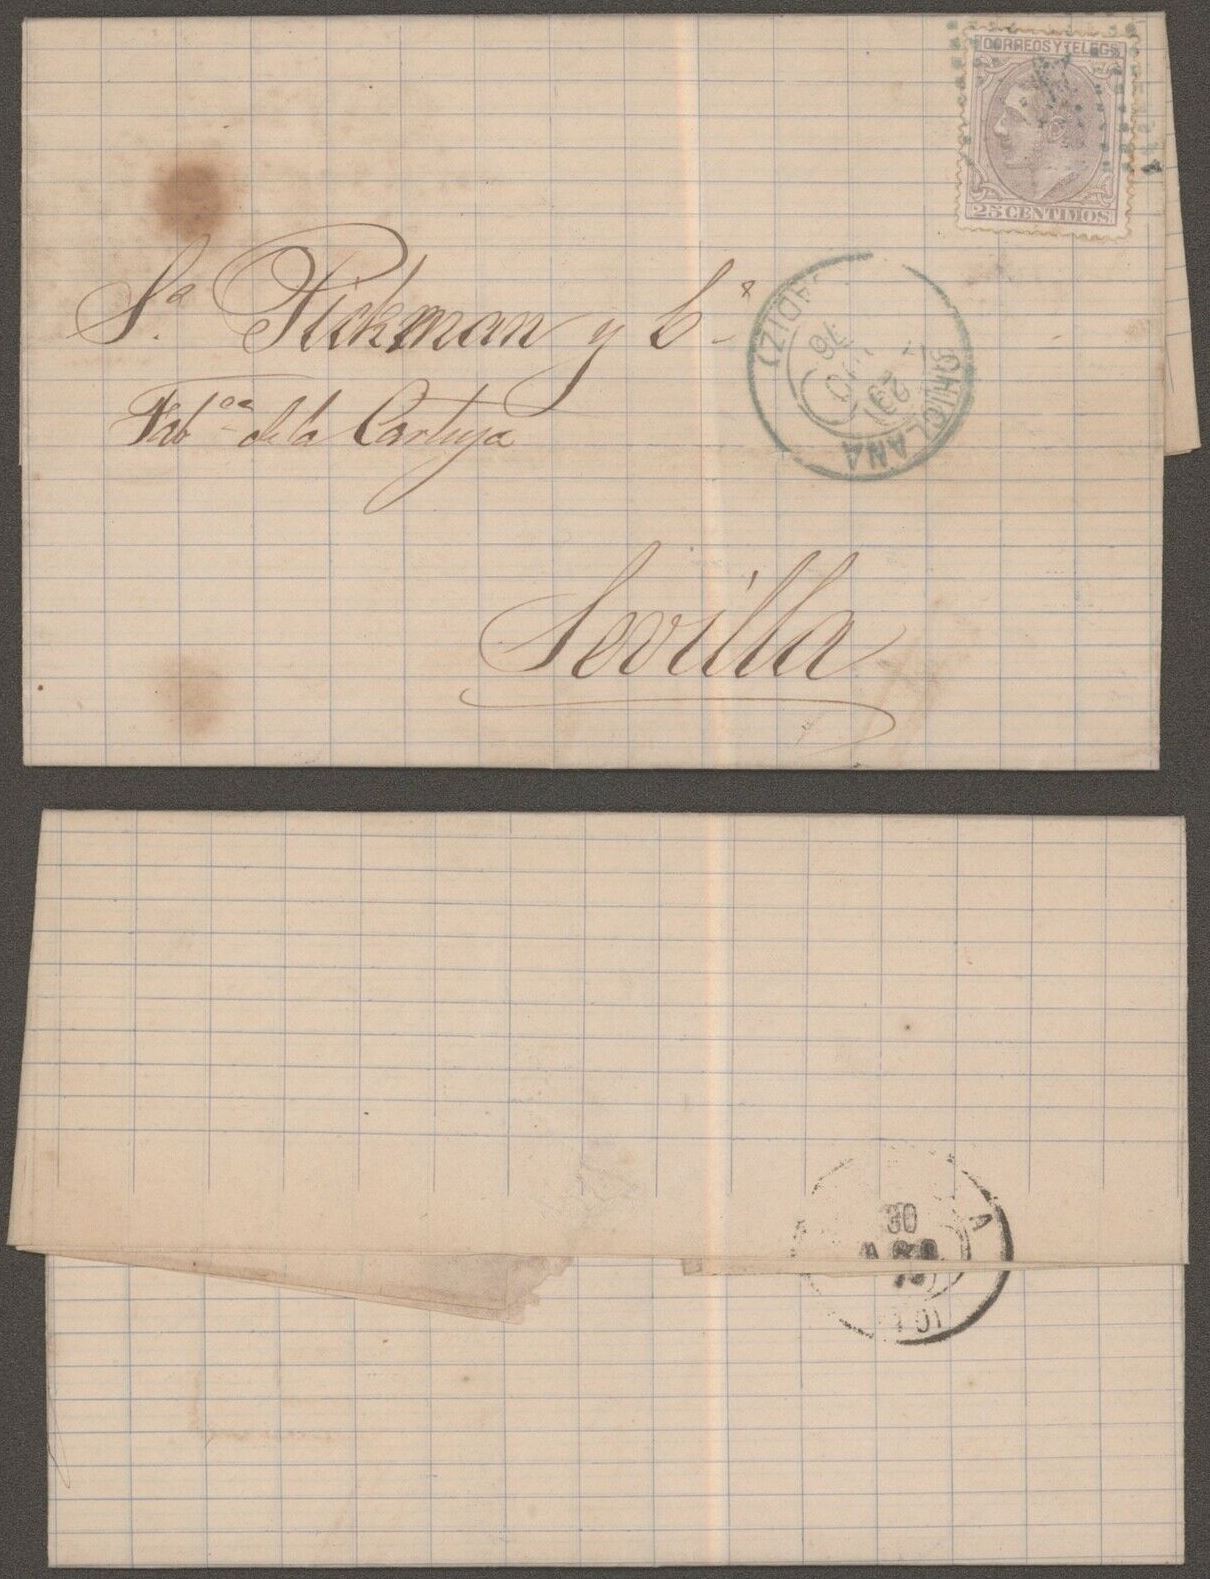 CORREOS Y TELEGS
25 CENTIMOS
Sª Pickman y Cª
Fabca de la Cartuja
CHICLANA
29
Sevilla
30
AGO
79
A